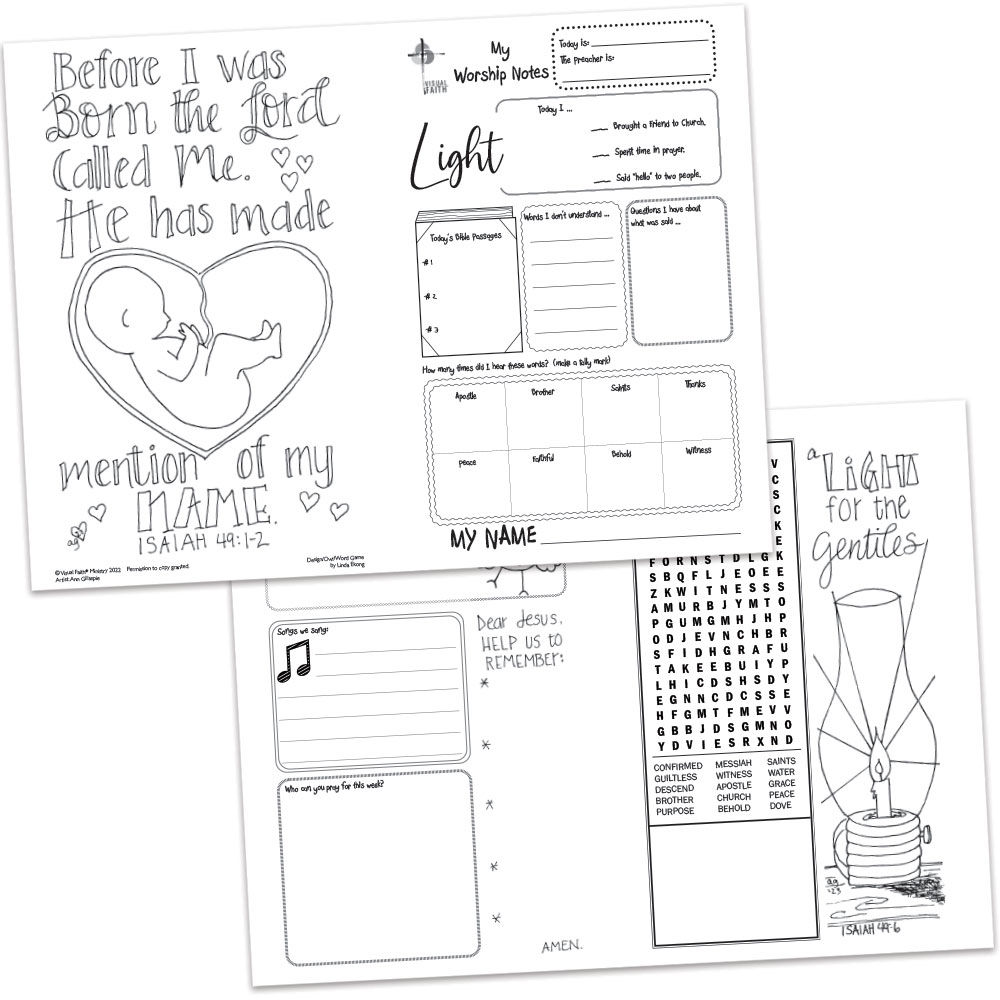 Before I was
Born the Lord
Called Me.
He has made
mention of my
NAME.
ISAIAH 49:1-2
ag
©Visual Faith® Ministry 2022 Permission to copy granted.
Artist Ann Gillaspie
Design/Owl/Word Game
by Linda Ekong
VISUAL
FAITH
My
Worship Notes
Today is:
The preacher is:
Light
Today I ...
Brought a Friend to Church.
Spent time in prayer.
Said "hello" to two people.
Today's Bible Passages
#1
#2
#3
Words I don't understand ...
Questions I have about
what was said ...
How many times did I hear these words? (make a tally mark)
Apostle Brother Saints Thanks
Peace Faithful Behold Witness
MY NAME
Songs we sang:
Who can you pray for this week?
Dear Jesus,
HELP US to
REMEMBER:
*
*
*
*
*
AMEN.
V
C
S
C
K
E
F O R N S T D L G K
S B Q F L J E O E E
Z K W I T N E S S S
A M U R B J Y M T O
P G U M G M H J H P
O D J E V N C H B R
S F I D H G R A F U
T A K E E B U I Y P
L H I C D S H S D Y
E G N N C D C S S E
H F G M T F M E V V
G B B J D S G M N O
Y D V I E S R X N D
CONFIRMED MESSIAH SAINTS
GUILTLESS WITNESS WATER
DESCEND APOSTLE GRACE
BROTHER CHURCH PEACE
PURPOSE BEHOLD DOVE
a LIGHT
for the
Gentiles
ag
'23
ISAIAH 49:6